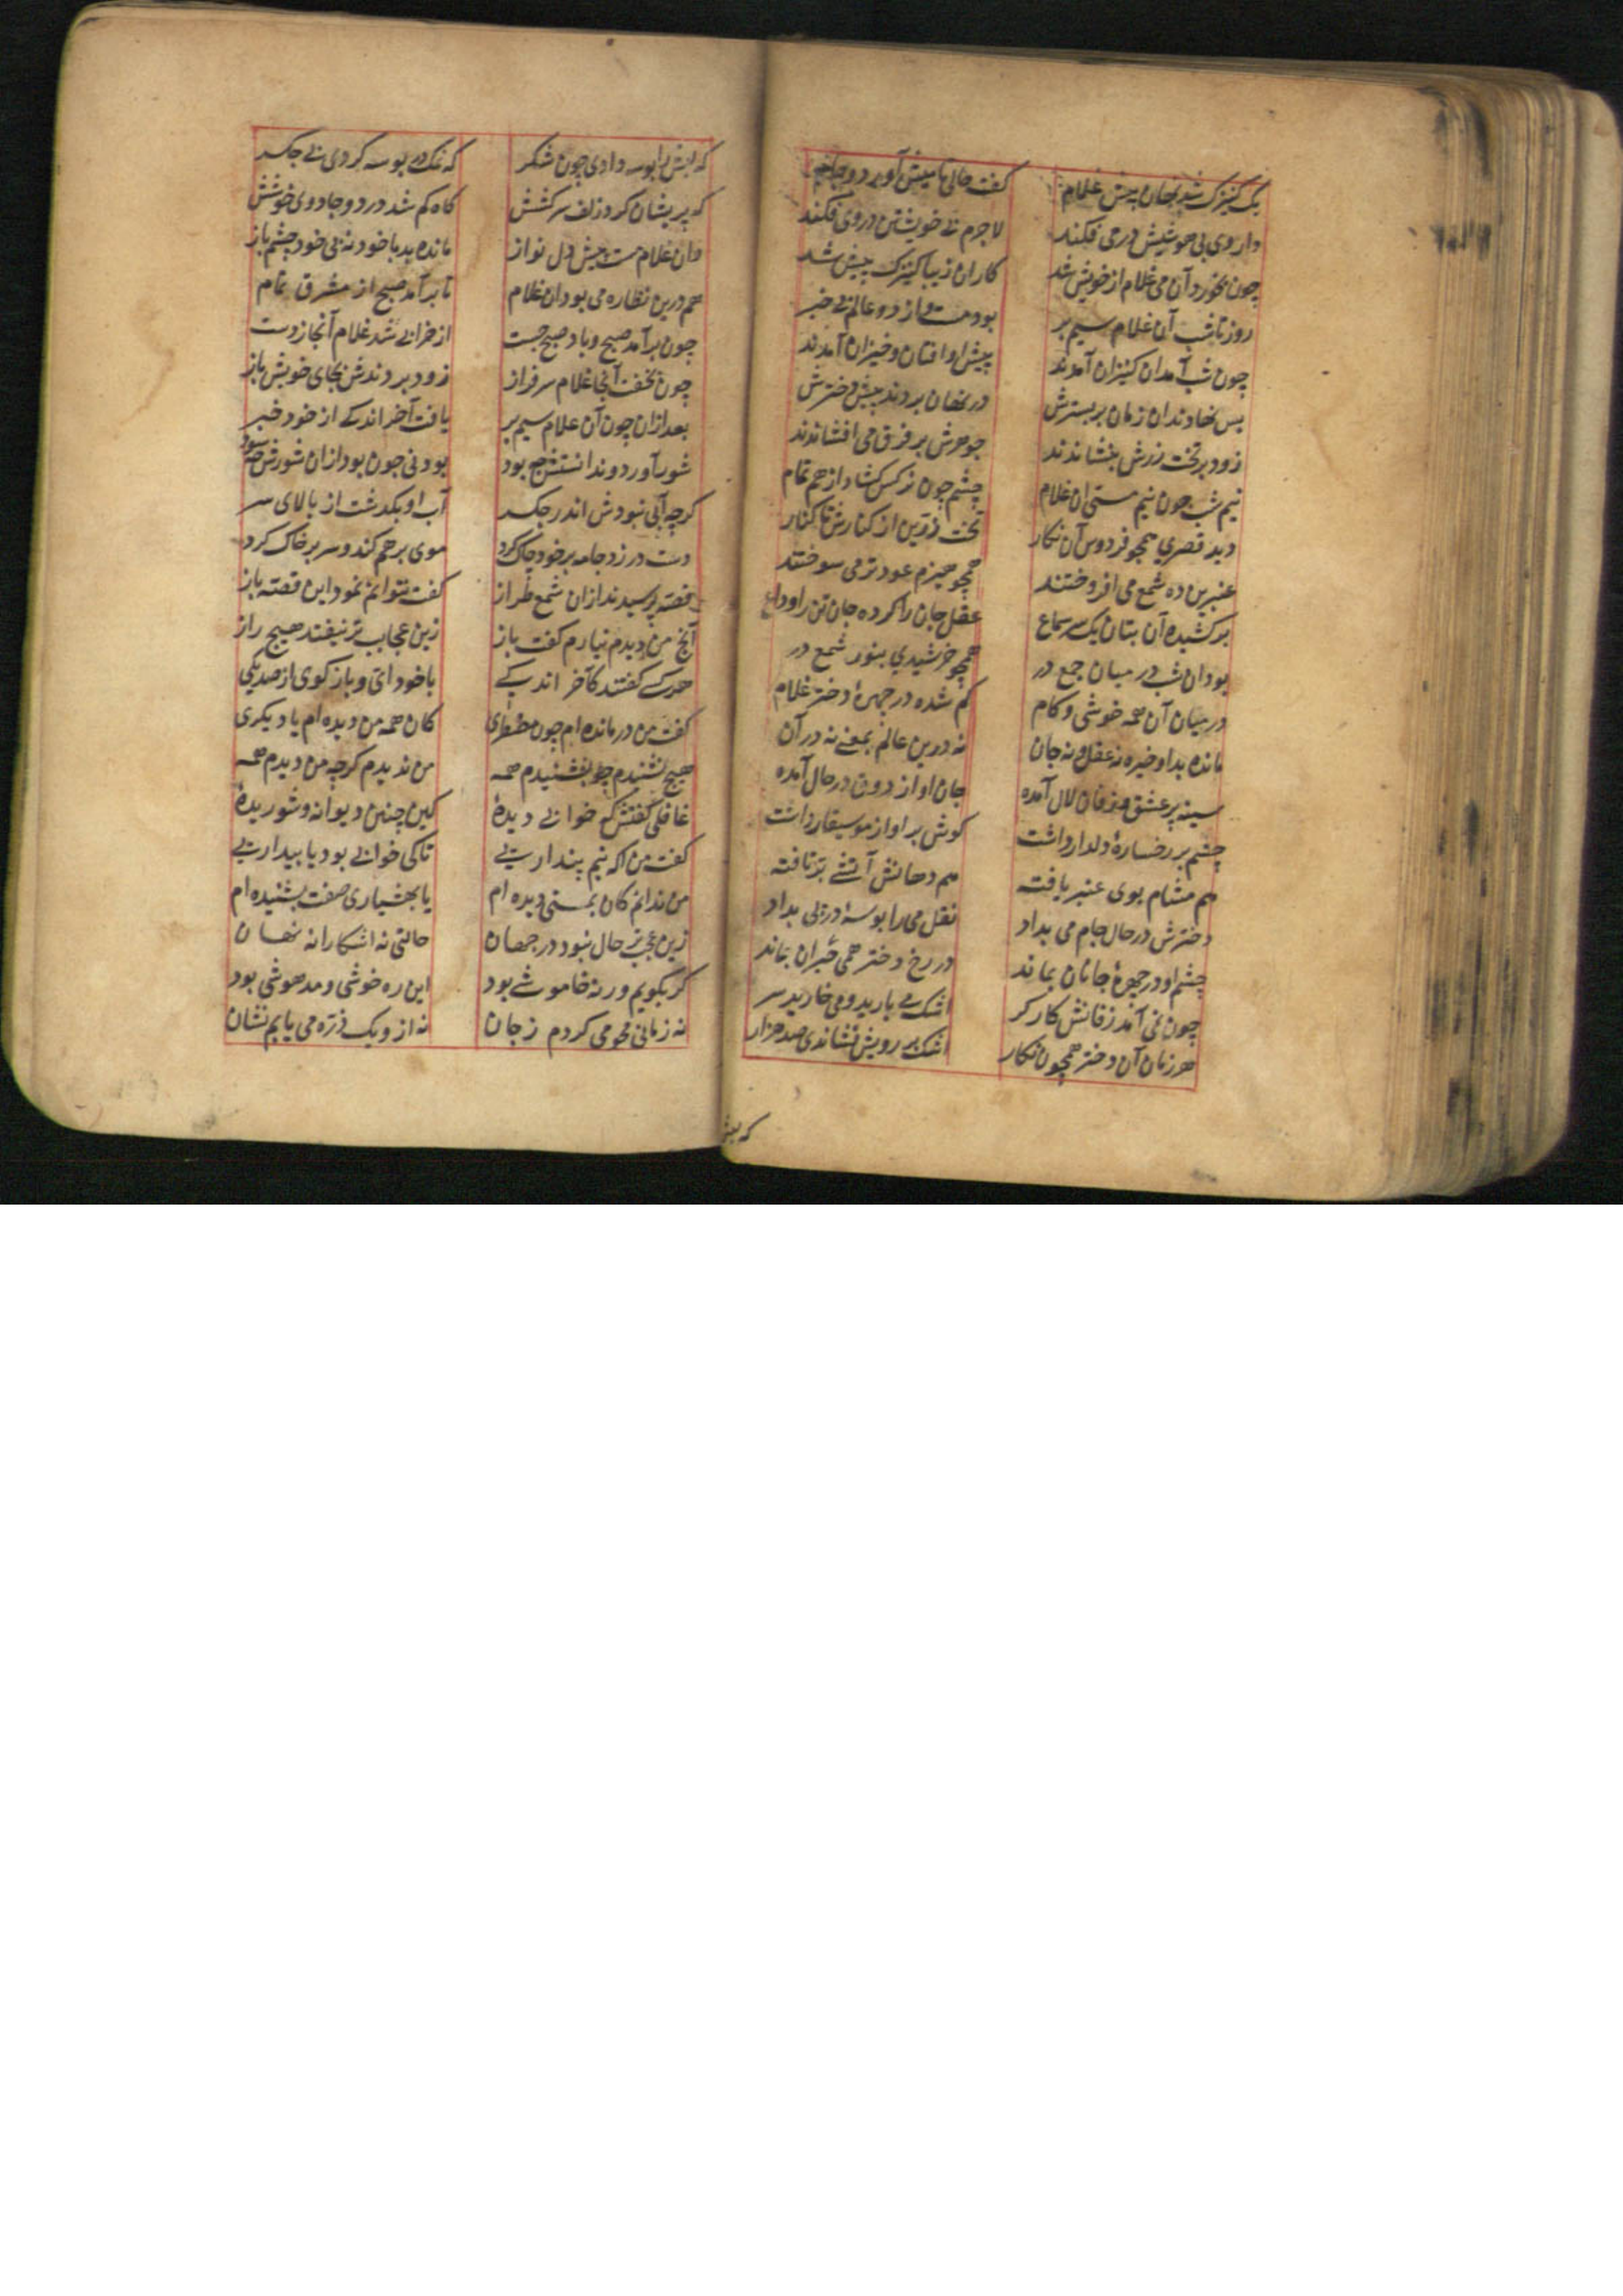 یک کنیزک شد نهان پیش غلام گفت حالی تا میش آورد و جام
داروی بی هوشیش در می فکند لاجرم بی خویشتن در وی فکند
چون بخورد آن می غلام از خویش شد کار آن زیبا کنیزک پیش شد
روز تا شب آن غلام سیم بر بود مست و از دو عالم بی خبر
چون شب آمد آن کنیزان آمدند پیش او افتان و خیزان آمدند
پس نهادند آن زمان بر بسترش در نهان بردند پیش دخترش
زود بر تخت زرش بنشاندند جوهرش بر فرق می افشاندند
نیم شب چون نیم مستی آن غلام چشم چون نرگس گشاد از هم تمام
دید قصری همچو فردوس آن نگار تخت زرین از کنارش تا کنار
عنبرین ده شمع می افروختند همچو هیزم عود تر می سوختند
برکشیده آن بتان یک سر سماع عقل جان را کرده جان تن را وداع
بود آن شب در میان جمع در همچو خرشیدی بنور شمع در
در میان آن همه خوشی و کام گم شده در چهرهٔ دختر غلام
مانده بد او خیره نه عقل و نه جان نه درین عالم بمعنی نه در آن
سینه پر عشق و زفان لال آمده جان او از ذوق در حال آمده
چشم بر رخسارهٔ دلدار داشت گوش بر آواز موسیقار داشت
هم مشام بوی عنبر یافته هم دهانش آتشی تر تافته
دخترش در حال جام می بداد نقل می را بوسهٔ در پی بداد
چشم او در چهرهٔ جانان بماند در رخ دختر همی حیران بماند
چون نمی آمد زفانش کارگر اشک می بارید و می خارید سر
هر زمان آن دختر همچون نگار اشک بر رویش فشاندی صد هزار
که لبش
که لبش را بوسه دادی چون شکر که نمک در بوسه کردی بی جگر
که پریشان کرد زلف سرکشش گاه گم شد در دو جادوی خوشش
وان غلام مست پیش دل نواز مانده بد با خود نه بی خود چشم باز
هم درین نظاره می بود آن غلام تا برآمد صبح از مشرق تمام
چون برآمد صبح و باد صبح جست از خرابی شد غلام آنجا ز دست
چون بخفت آنجا غلام سرفراز زود بردندش بجای خویش باز
بعد از آن چون آن غلام سیم بر یافت آخر اندکی از خود خبر
شور آورد و ندانستش چه بود بودنی چون بود از آن شورش چه سود
گرچه آبی نبودش اندر جگر آب او بگذشت از بالای سر
دست در زد جامه بر خود چاک کرد موی بر هم کند و سر بر خاک کرد
قصه پرسیدند از آن شمع طراز گفت نتوانم نمود این قصه باز
آنچ من دیدم نیارم گفت باز زین عجایب تر نیفتد هیچ راز
هر کسی گفتند کآخر اندکی با خود آی و باز گوی از صد یکی
گفت من درمانده ام چون مضطری کان همه من دیده ام یا دیگری
هیچ نشنیدم چو بشنیدم همه من ندیدم گرچه من دیدم همه
غافلی گفتش که خوابی دیدهٔ کین چنین دیوانه و شوریدهٔ
گفت من آگه نیم پنداریی تا که خوابی بود یا بیداریی
من ندانم کان بمستی دیده ام یا بهشیاری صفت بشنیده ام
زین عجب تر حال نبود در جهان حالتی نه آشکارا نه نهان
گر بگویم ور نه خاموشی بود این ره خوشی و مدهوشی بود
نه زمانی محو می کردم ز جان نه ازو یک ذره می یابم نشان